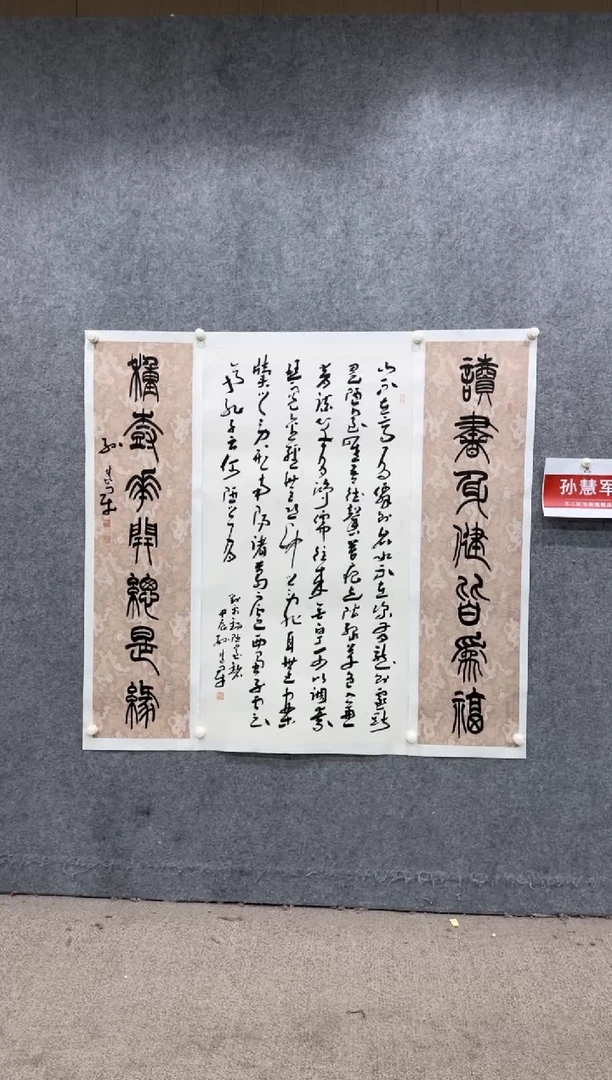 讀書身健皆為福
山不在高有仙则名水不在深有龙则灵斯
是陋室唯吾德馨苔痕上阶绿草色入帘
青谈笑有鸿儒往来无白丁可以调素
琴阅金经无丝竹之乱耳无案
牍之劳形南阳诸葛庐西蜀子云之
亭孔子云何陋之有
刘禹锡陋室铭
甲辰孙慧军
種樹花開總是緣
孙慧军
孙慧军